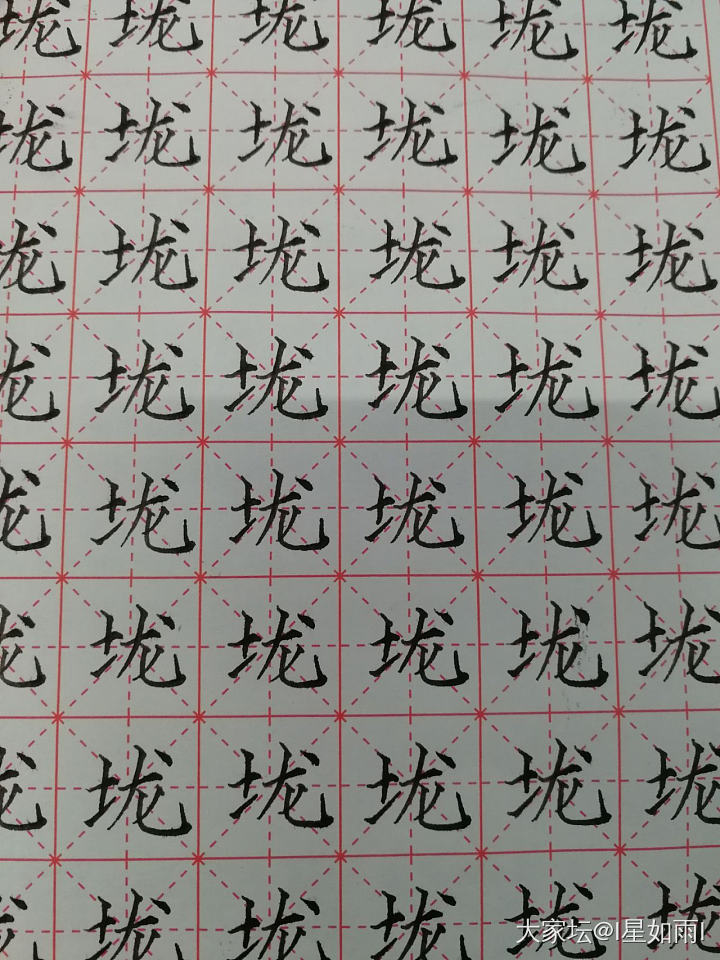 垅垅垅垅垅垅
垅垅垅垅垅垅
垅垅垅垅垅垅
垅垅垅垅垅垅
垅垅垅垅垅垅
垅垅垅垅垅垅
垅垅垅垅垅垅
垅垅垅垅垅垅
大家坛@l星如雨l